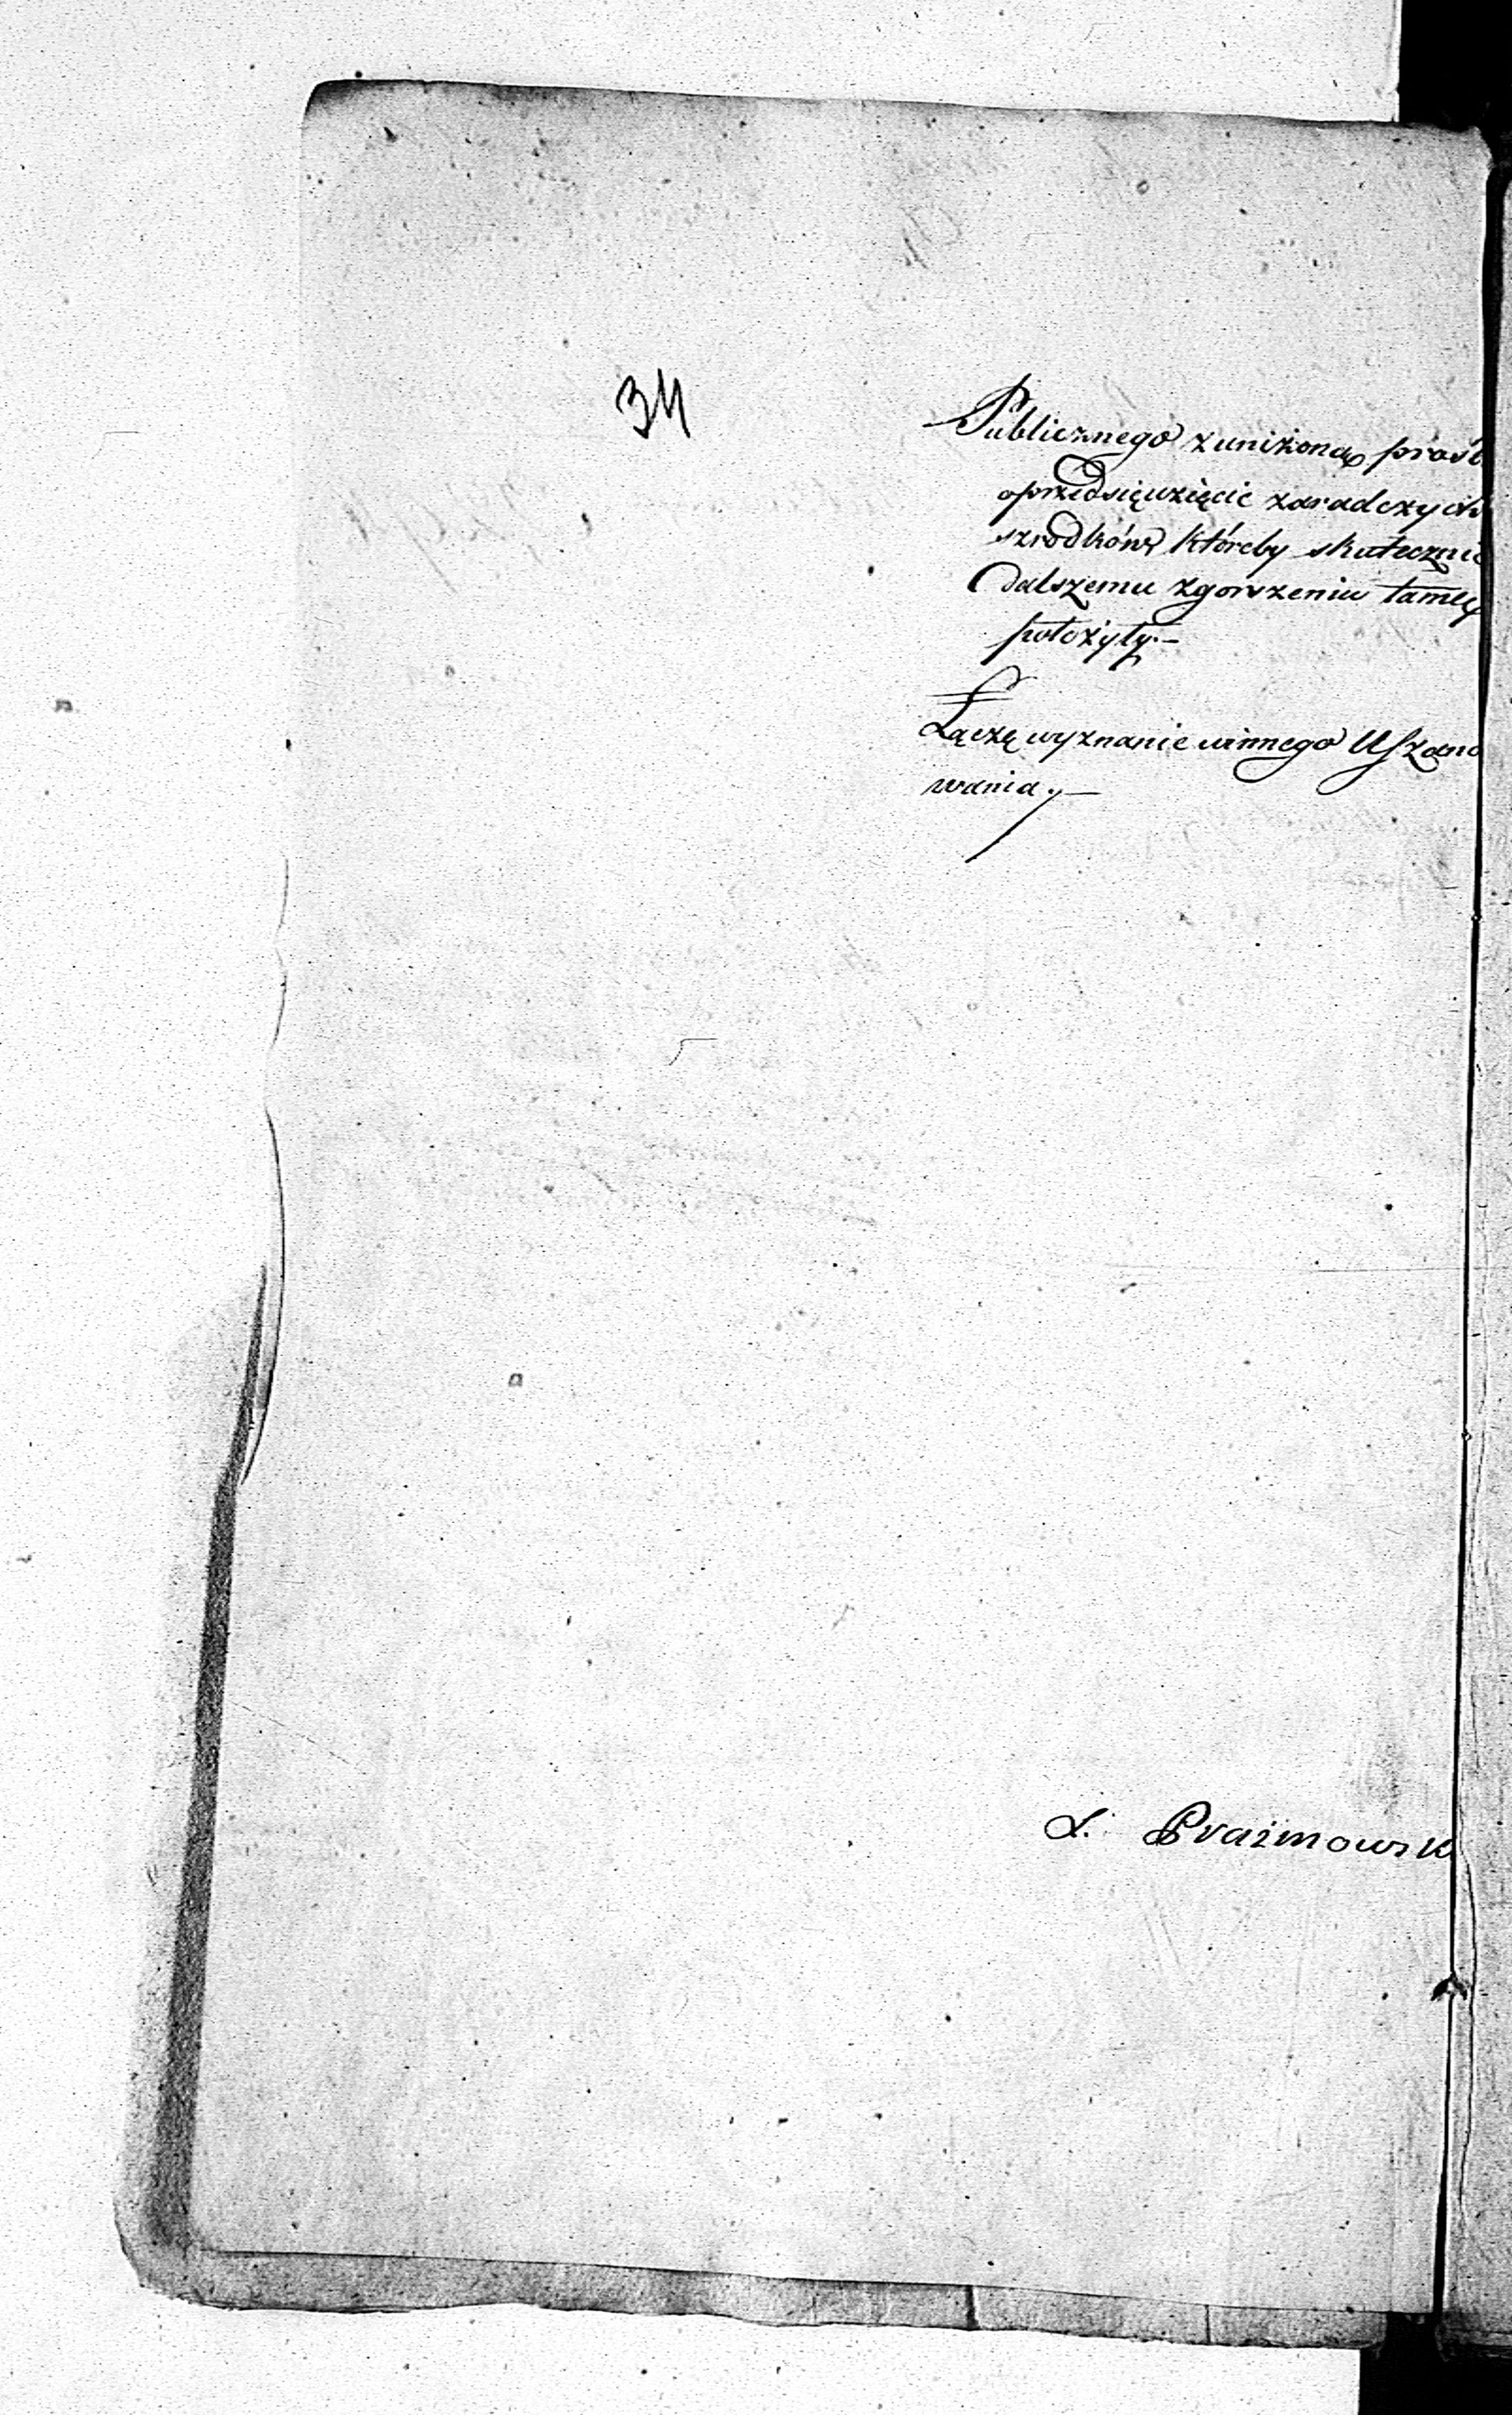 34
Publicznego z uniżoną proś
o przedsięwzięcie zaradczych
szrodków któreby skutecznie
dalszemu zgorszeniu tamę
położyły.—
Łączę wyznanie winnego Uszano
wania.—
L. Prażmowsk